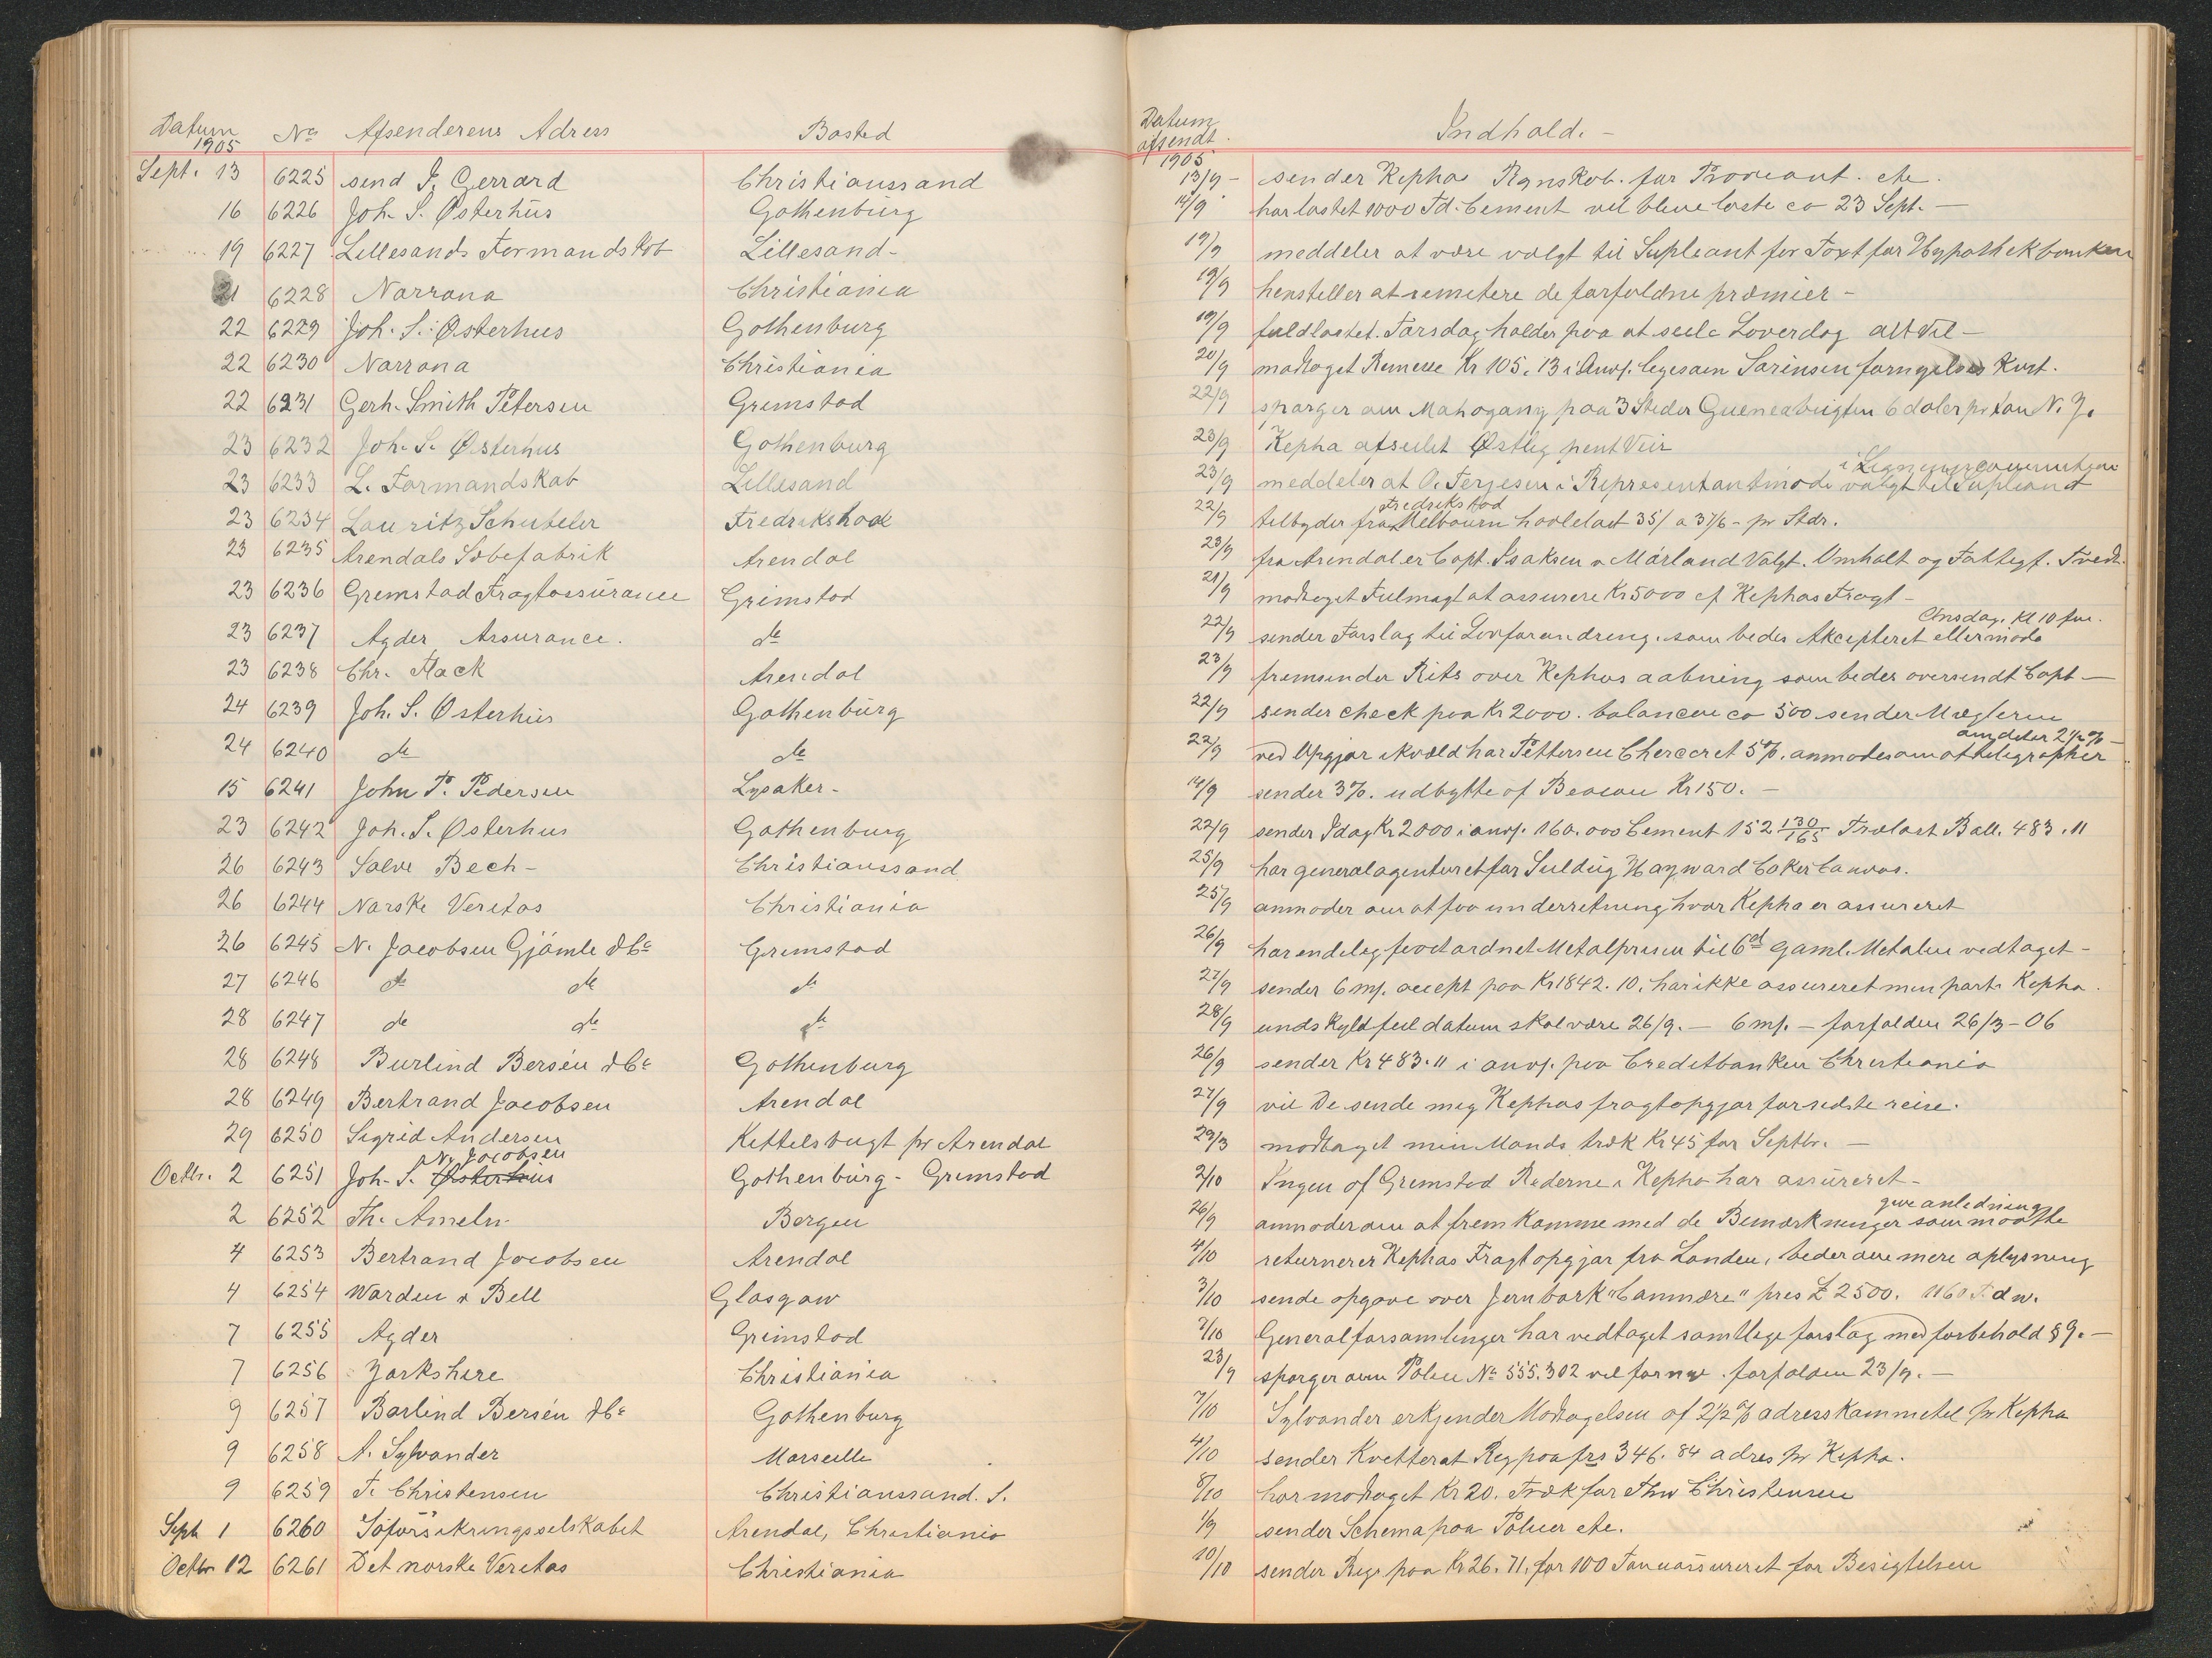 Datum 1905 No Afsenderens Adress Bosted Datum afsendt 1905 Indhold. -
Sept. 13 6225 send J. Gerrard Christianssand 13/9 - sender Kephas Rgnskob. for Proviant. etc.
16 6226 Joh. S. Østerhus Gothenburg 14/9 har lastet 1000 Td. Cement vil blive laste ca 23 Sept. -
19 6227 Lillesands Formandskob Lillesand - 19/9 meddeler at være valgt til Supleant for Taxt for Hypothekbanken
21 6228 Norrona Christiania 19/9 henstiller at remitere de forfoldne præmier -
22 6229 Joh. S. Østerhus Gothenburg 19/9 fuldlastet. Torsdag holder paa at seile Loverdag alt vel -
22 6230 Norrona Christiania 20/9 modtaget Remesse Kr 105.13 i Anv. Sørinsen fornyelses Kvit.
22 6231 Gerh. Smith Petersen Grimstad 22/9 sporger om Mahogany paa 3 Steder 6 doler pr ton N. Y.
23 6232 Joh. S. Østerhus Gothenburg 23/9 Kepha afseilet Østlig pent Veir
23 6233 L. Formandskab Lillesand 23/9 meddeler at O. Terjesen i Representantmode valgt til Supleant
23 6234 Lauritz Schubeler Fredrikshad 22/9 tilbyder fra Fredrikstad Melbourn hovlelast 35/ a 37/6 - pr Stdr.
23 6235 Arendals Sæbefabrik Arendal 23/9 fra Arendal er Capt. Isaksen o Mårland Valgt. Omhalt og Fattigf. Tvedt.
23 6236 Grimstad Fragtassurance Grimstad 21/9 modtaget Fulmagt at assurere Kr 5000 af Kephas Fragt -
23 6237 Agder Assurance. do 22/9 sender Forslag til Lovforandring. som bedes Akcepteret eller mode Onsdag. Kl 10 fm.
23 6238 Chr. Flack Arendal 23/9 fremsender Rits over Kephas aabning som bedes oversendt Capt -
24 6239 Joh. S. Osterhus Gothenburg 22/9 sender check paa Kr 2000. balancen ca 500 sender Mægleren
24 6240 do do 22/9 ved Opgjør ikvæld har Pettersen 5%. anmodes om at telegraphir 2 1/2 % -
15 6241 John P. Pedersen Lysaker - 14/9 sender 3%. udbytte af Beacon Kr 150. -
23 6242 Joh. S. Østerhus Gothenburg 22/9 sender Idag Kr 2000 i anv. 160.000 Cement 152 130/165 Trælast Ball. 483.11
26 6243 Salve Bech - Christianssand 25/9 har generalagenturet for Suldig Hayward Coker Canvas.
26 6244 Norske Veritas Christiania 25/9 anmoder om at faa underretning hvor Kepha er assureret
26 6245 N. Jacobsen Gjömle & Co Grimstad 26/9 har endelig faaet ordnet Metalprisen til 6d gaml. Metalen vedtaget -
27 6246 do do do 27/9 sender 6 m/. accept paa Kr 1842.10. har ikke assureret min part i Kepha.
28 6247 do do do 28/9 undskyld feil datum skal være 26/9. - 6 m/. - forfalden 26/3 - 06
28 6248 Burlind Bersén & Co Gothenburg 26/9 sender Kr 483.11 i anv. paa Creditbanken Christiania
28 6249 Bertrand Jacobsen Arendal 27/9 vil De sende mig Kephas fragtopgjør forsidste reise.
29 6250 Sigrid Andersen Kittelsbugt pr Arendal 29/9 modtaget min Mands træk Kr 45 for Septbr. -
Octbr. 2 6251 Joh. S. Østerhus N. Jacobsen Gothenburg - Grimstad 2/10 Ingen af Grimstad Rederne i Kepha har assureret -
2 6252 Th. Ameln Bergen 26/9 anmoder om at fremkomme med de Bemærkninger som maatte give anledning
4 6253 Bertrand Jacobsen Arendal 4/10 returnerer Kephas Fragtopgjør fra London, beder om mere oplysning
4 6254 Warden & Bell Glasgow 3/10 sende opgave over Jernbark "Canmore" pris £ 2500. 1160 T. dw.
7 6255 Agder Grimstad 7/10 Generalforsamlinger har vedtaget samtlige forslag med forbehold § 9. -
7 6256 Yorkshire Christiania 23/9 sporger om Police No 555.302 vil fornye. forfalden 23/9. -
9 6257 Barlind Bersén & Co Gothenburg 7/10 Sylvander erkjender Modtagelsen af 2 1/2 % adresskommitel pr Kepha
9 6258 A. Sylvander Marseille 4/10 sender Kvitterat Reg paa frs 346.84 adres pr Kepha.
9 6259 T. Christensen Christianssand. S. 8/10 har modtaget Kr 20. Træk for Thv Christensen
Sept 1 6260 Søforsikringsselskabet Arendal, Christiania 1/9 sender Schema paa Policer etc.
Octbr 12 6261 Det norske Veritas Christiania 10/10 sender Reg. paa Kr 26.71. for 100 Ton for Besigtelsen